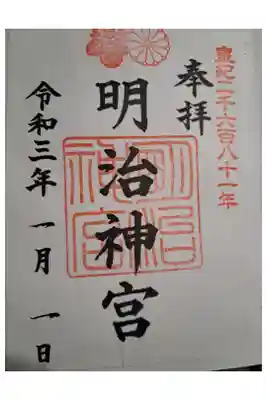 皇紀二千六百八十一年
奉拝
明治神宮
明治神宮
令和三年 一月 一日